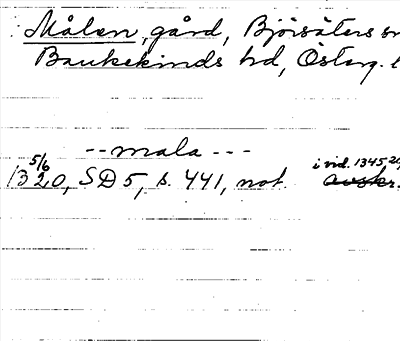 Målen, gård, Björsäters sn
Bankekinds hd, Österg. l
-- mala ---
5/6 1320, SD 5, s. 441, not. i vid. 1345 20/ avskr.